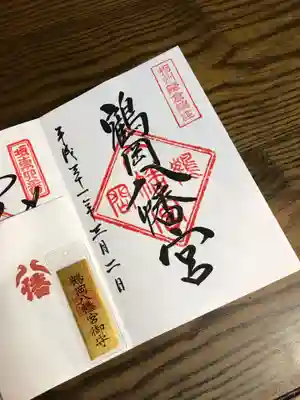 相州鎌倉鎮座
鶴岡八幡宮
平成三十一年三月二日
八幡
鶴岡八幡宮御守